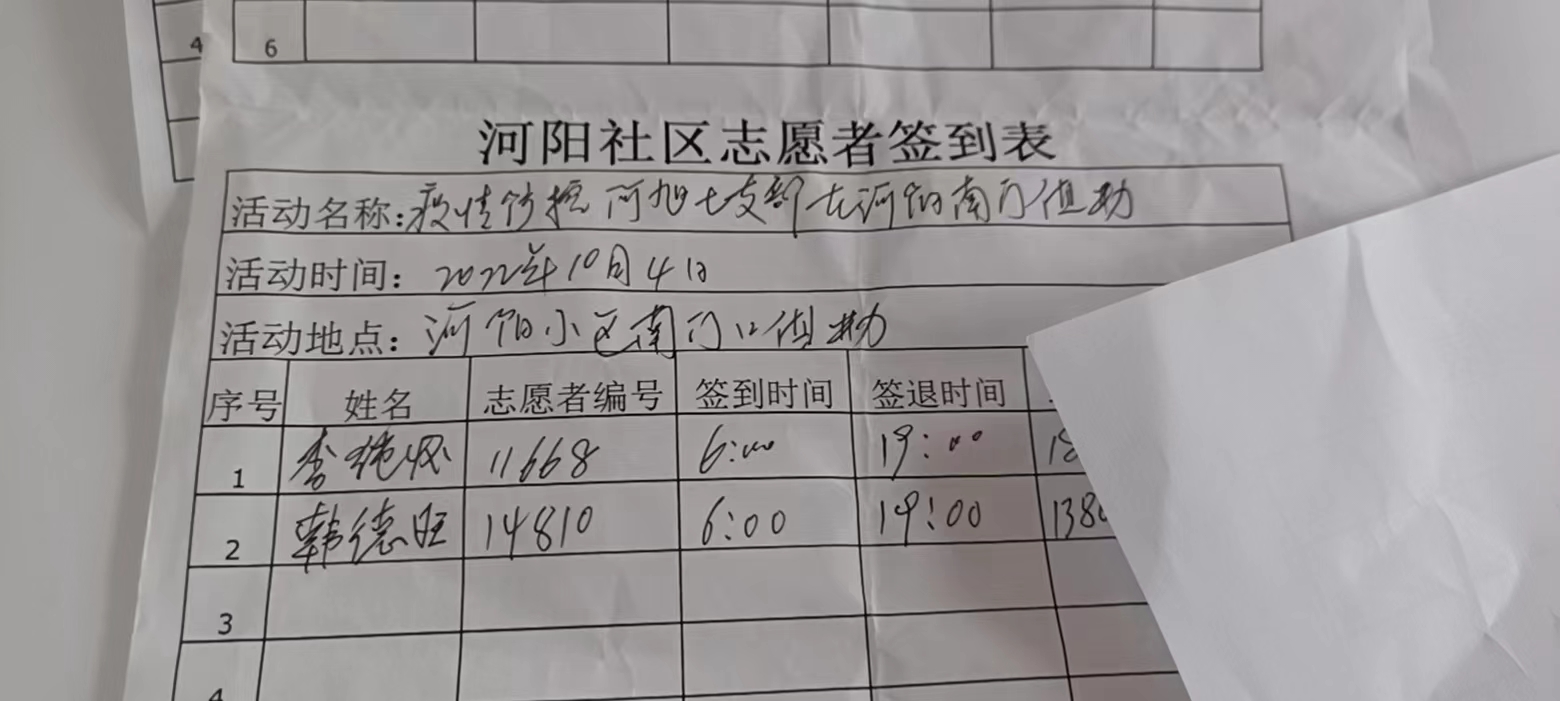 4 6
河阳社区志愿者签到表
活动名称：疫情防控 河旭七支部在河阳南门值勤
活动时间：2022年10月4日
活动地点：河阳小区南门口值勤
序号 姓名 志愿者编号 签到时间 签退时间
1 李 11668 6:00 19:00 18
2 韩德旺 14810 6:00 19:00 138
3
4